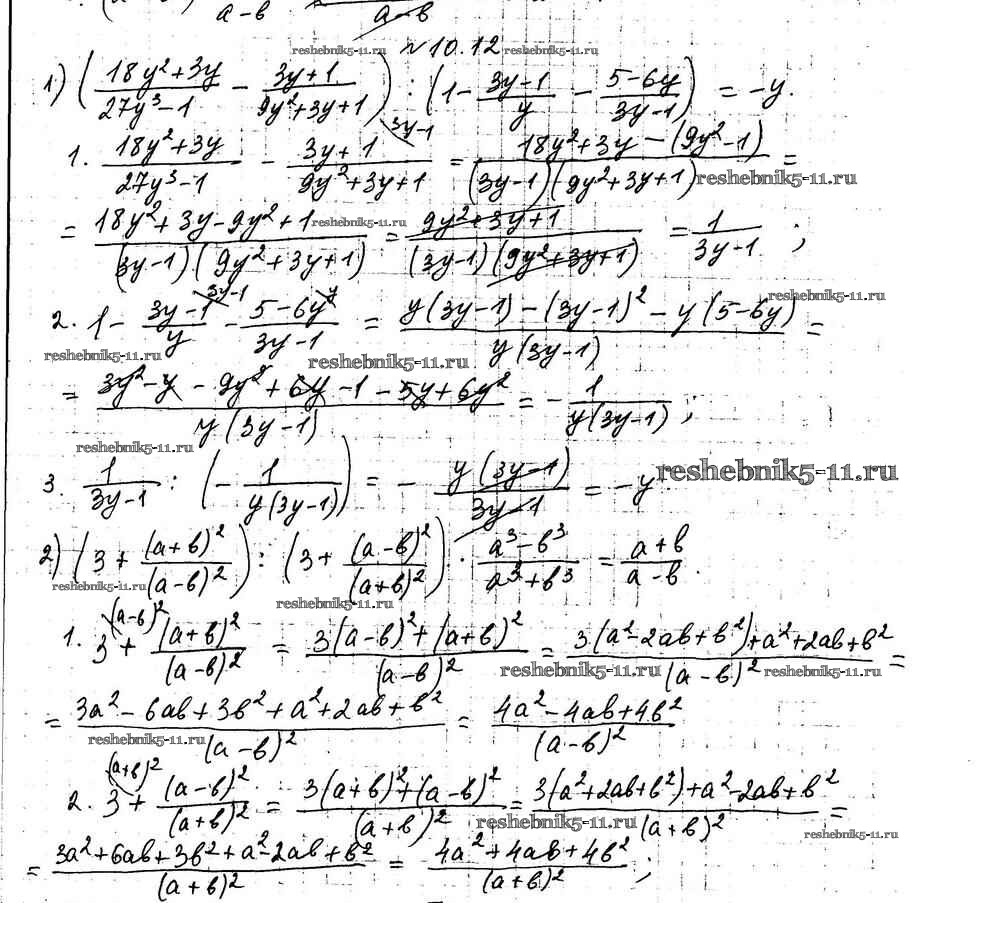 а-в      а-в
№ 10.12
reshebnik5-11.ru reshebnik5-11.ru
1) ((18y²+3y)/(27y³-1) - (3y+1)/(9y²+3y+1)) : (1 - (3y-1)/y - (5-6y)/(3y-1)) = -y.
1. (18y²+3y)/(27y³-1) - (3y+1)/(9y²+3y+1) ^(3y-1) = (18y²+3y-(9y²-1))/((3y-1)(9y²+3y+1)) =
reshebnik5-11.ru
= (18y²+3y-9y²+1)/((3y-1)(9y²+3y+1)) = (9y²+3y+1)/((3y-1)(9y²+3y+1)) = 1/(3y-1) ;
reshebnik5-11.ru
reshebnik5-11.ru
2. 1 - (3y-1)/y ^(3y-1) - (5-6y)/(3y-1) ^y = (y(3y-1)-(3y-1)²-y(5-6y))/(y(3y-1)) =
reshebnik5-11.ru reshebnik5-11.ru
= (3y²-y-9y²+6y-1-5y+6y²)/(y(3y-1)) = -1/(y(3y-1)) ;
reshebnik5-11.ru
3. 1/(3y-1) : (-1/(y(3y-1))) = -(y(3y-1))/(3y-1) = -y
reshebnik5-11.ru
2) (3 + (a+в)²/(a-в)²) : (3 + (a-в)²/(a+в)²) · (a³-в³)/(a³+в³) = (a+в)/(a-в).
reshebnik5-11.ru reshebnik5-11.ru
1. 3 ^(a-в)² + (a+в)²/(a-в)² = (3(a-в)²+(a+в)²)/(a-в)² = (3(a²-2ab+в²)+a²+2ab+в²)/(a-в)² =
reshebnik5-11.ru reshebnik5-11.ru
= (3a²-6ab+3в²+a²+2ab+в²)/(a-в)² = (4a²-4ab+4в²)/(a-в)²
reshebnik5-11.ru
2. 3 ^(a+в)² + (a-в)²/(a+в)² = (3(a+в)²+(a-в)²)/(a+в)² = (3(a²+2ab+в²)+a²-2ab+в²)/(a+в)² =
reshebnik5-11.ru reshebnik5-11.ru
= (3a²+6ab+3в²+a²-2ab+в²)/(a+в)² = (4a²+4ab+4в²)/(a+в)² ;